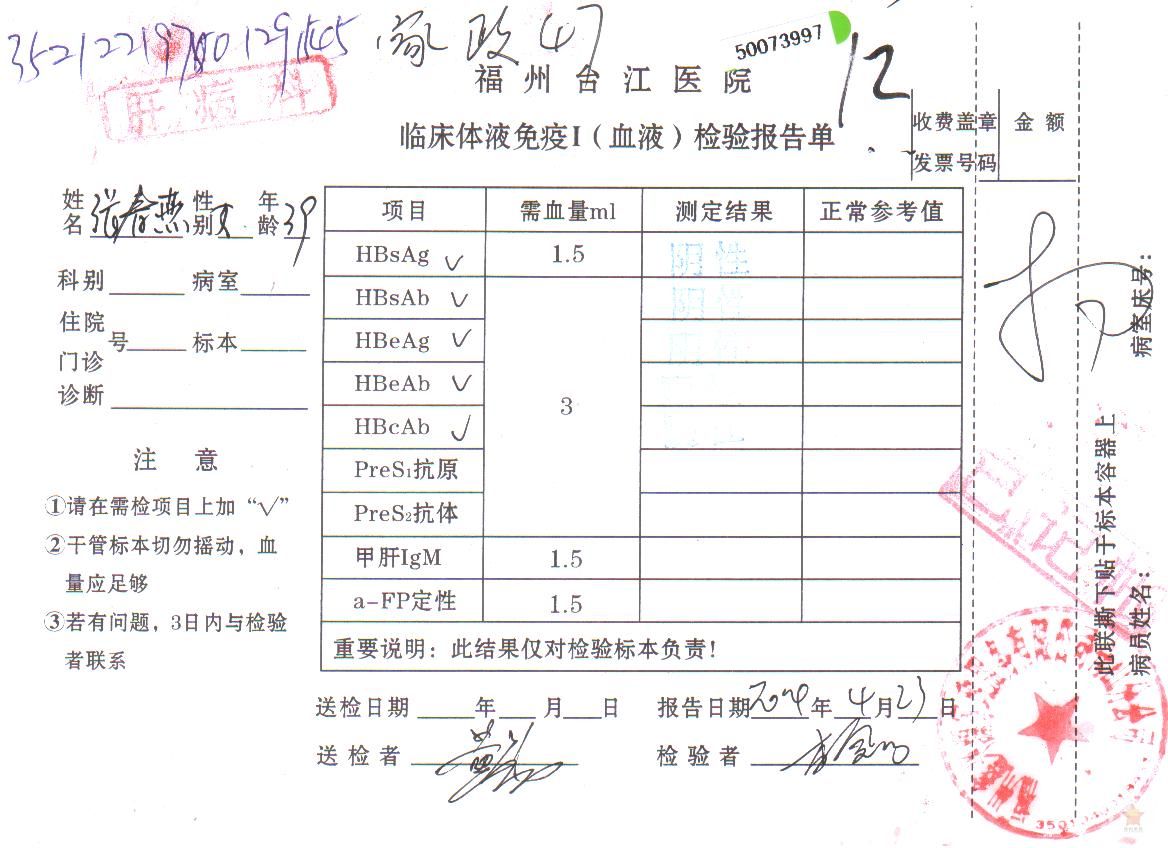 家政47
50073997
12
肝病科
福州台江医院
临床体液免疫I（血液）检验报告单
收费盖章 金额
发票号码
姓名 张春燕 性别 女 年龄 39
科别 病室
住院
门诊 号 标本
诊断
注意
①请在需检项目上加“√”
②干管标本切勿摇动，血
量应足够
③若有问题，3日内与检验
者联系
项目 需血量ml 测定结果 正常参考值
HBsAg √ 1.5 阴性
HBsAb √ 阴性
HBeAg √ 阴性
HBeAb √ 3
HBcAb √
PreS₁抗原
PreS₂抗体
甲肝IgM 1.5
a-FP定性 1.5
重要说明：此结果仅对检验标本负责！
送检日期 年 月 日 报告日期 年 4月23日
送检者 检验者
此联撕下贴于标本容器上
病员姓名： 病室床号：